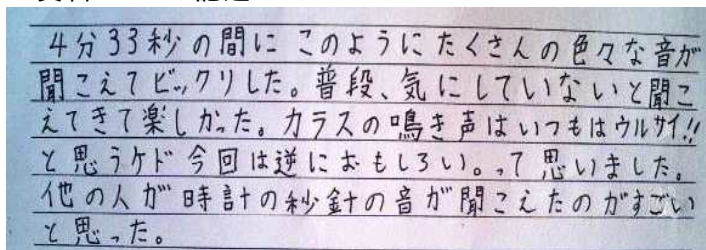 4分33秒の間に このようにたくさんの色々な音が
聞こえてビックリした。普段、気にしていないと聞こ
えてきて楽しかった。カラスの鳴き声はいつもはウルサイ!!
と思うケド今回は逆におもしろい。って思いました。
他の人が時計の秒針の音が聞こえたのがすごい
と思った。